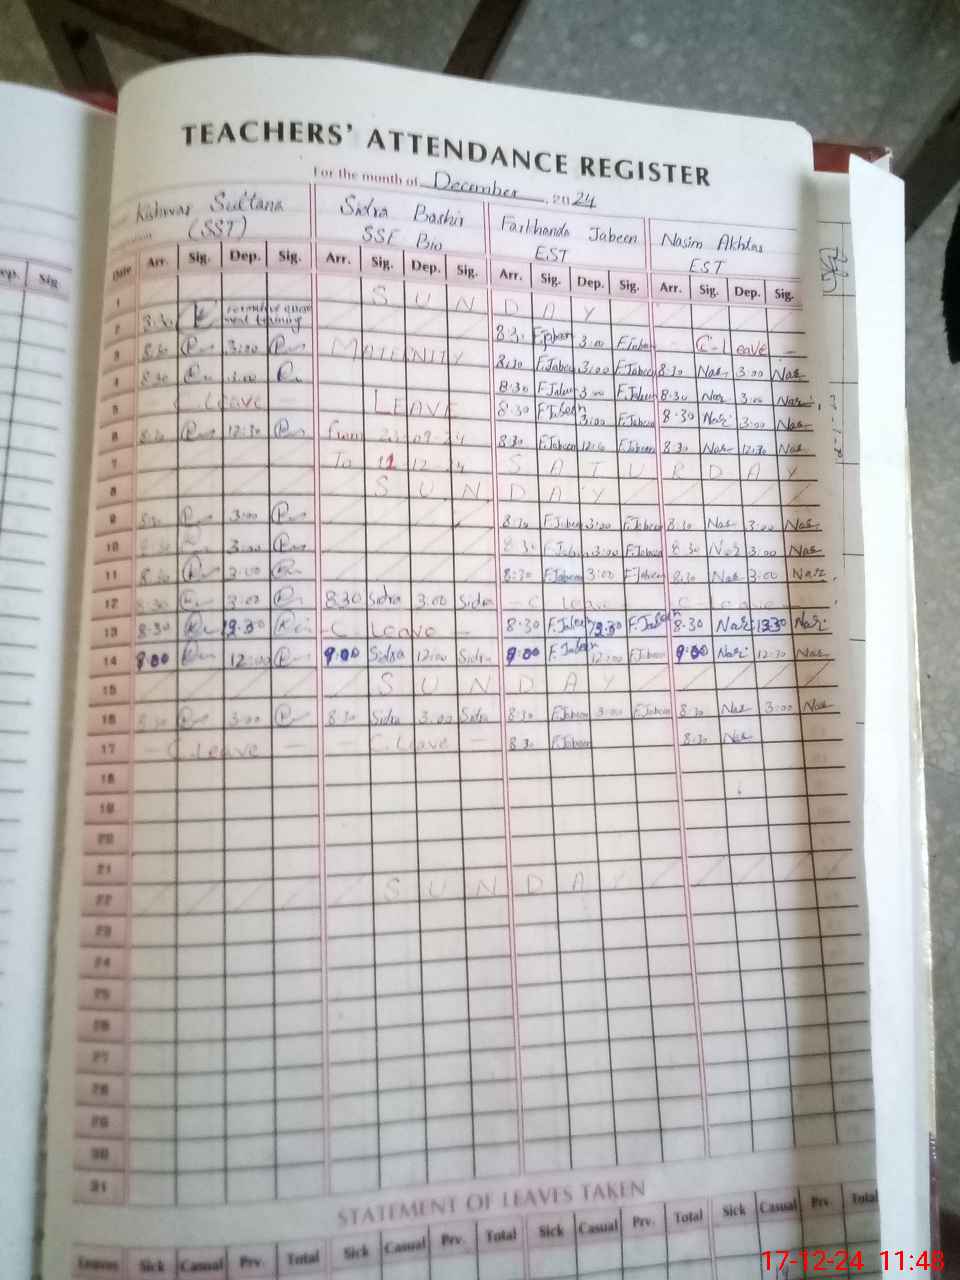 TEACHERS' ATTENDANCE REGISTER
For the month of December, 2024
Kishwar Sultana (SST) Sidra Bashir SSE Bio Farkhanda Jabeen EST Nasim Akhtar EST
Date Arr. Sig. Dep. Sig. Arr. Sig. Dep. Sig. Arr. Sig. Dep. Sig. Arr. Sig. Dep. Sig.
1 SUNDAY
2 8:30 training 8:30 3:00 F.Jabeen - C-Leave -
3 8:30 3:00 MATERNITY 8:30 F.Jabeen 3:00 F.Jabeen 8:30 Nas 3:00 Nas
4 8:30 3:00 8:30 F.Jabeen 3:00 F.Jabeen 8:30 Nas 3:00 Nas
5 - C.Leave LEAVE 8:30 F.Jabeen 3:00 F.Jabeen 8:30 Nas 3:00 Nas
6 8:30 12:30 from 23-09-24 8:30 F.Jabeen F.Jabeen 8:30 Nas 12:30 Nas
7 To 11 12 24 SATURDAY
8 SUNDAY
9 8:30 3:00 8:30 F.Jabeen 3:00 F.Jabeen 8:30 Nas 3:00 Nas
10 8:30 3:00 8:30 F.Jabeen 3:00 F.Jabeen 8:30 Nas 3:00 Nas
11 8:30 3:00 8:30 F.Jabeen 3:00 F.Jabeen 8:30 Nas 3:00 Nas
12 8:30 3:00 8:30 Sidra 3:00 Sidra - C Leave C-Leave
13 8:30 12:30 - C. Leave - 8:30 F.Jabeen 12:30 F.Jabeen 8:30 Nas 12:30 Nas
14 9:00 12:00 9:00 Sidra 12:00 Sidra 9:00 F.Jabeen 12:00 F.Jabeen 9:00 Nas 12:30 Nas
15 SUNDAY
16 8:30 3:00 8:30 Sidra 3:00 Sidra 8:30 F.Jabeen 3:00 F.Jabeen 8:30 Nas 3:00 Nas
17 - C.Leave - - C.Leave - 8:30 F.Jabeen 8:30 Nas
18
19
20
21
22 SUNDAY
23
24
25
26
27
28
29
30
31
STATEMENT OF LEAVES TAKEN
Leaves Sick Casual Prv. Total Sick Casual Prv. Total Sick Casual Prv. Total Sick Casual Prv. Total
ep. Sig
17-12-24 11:48